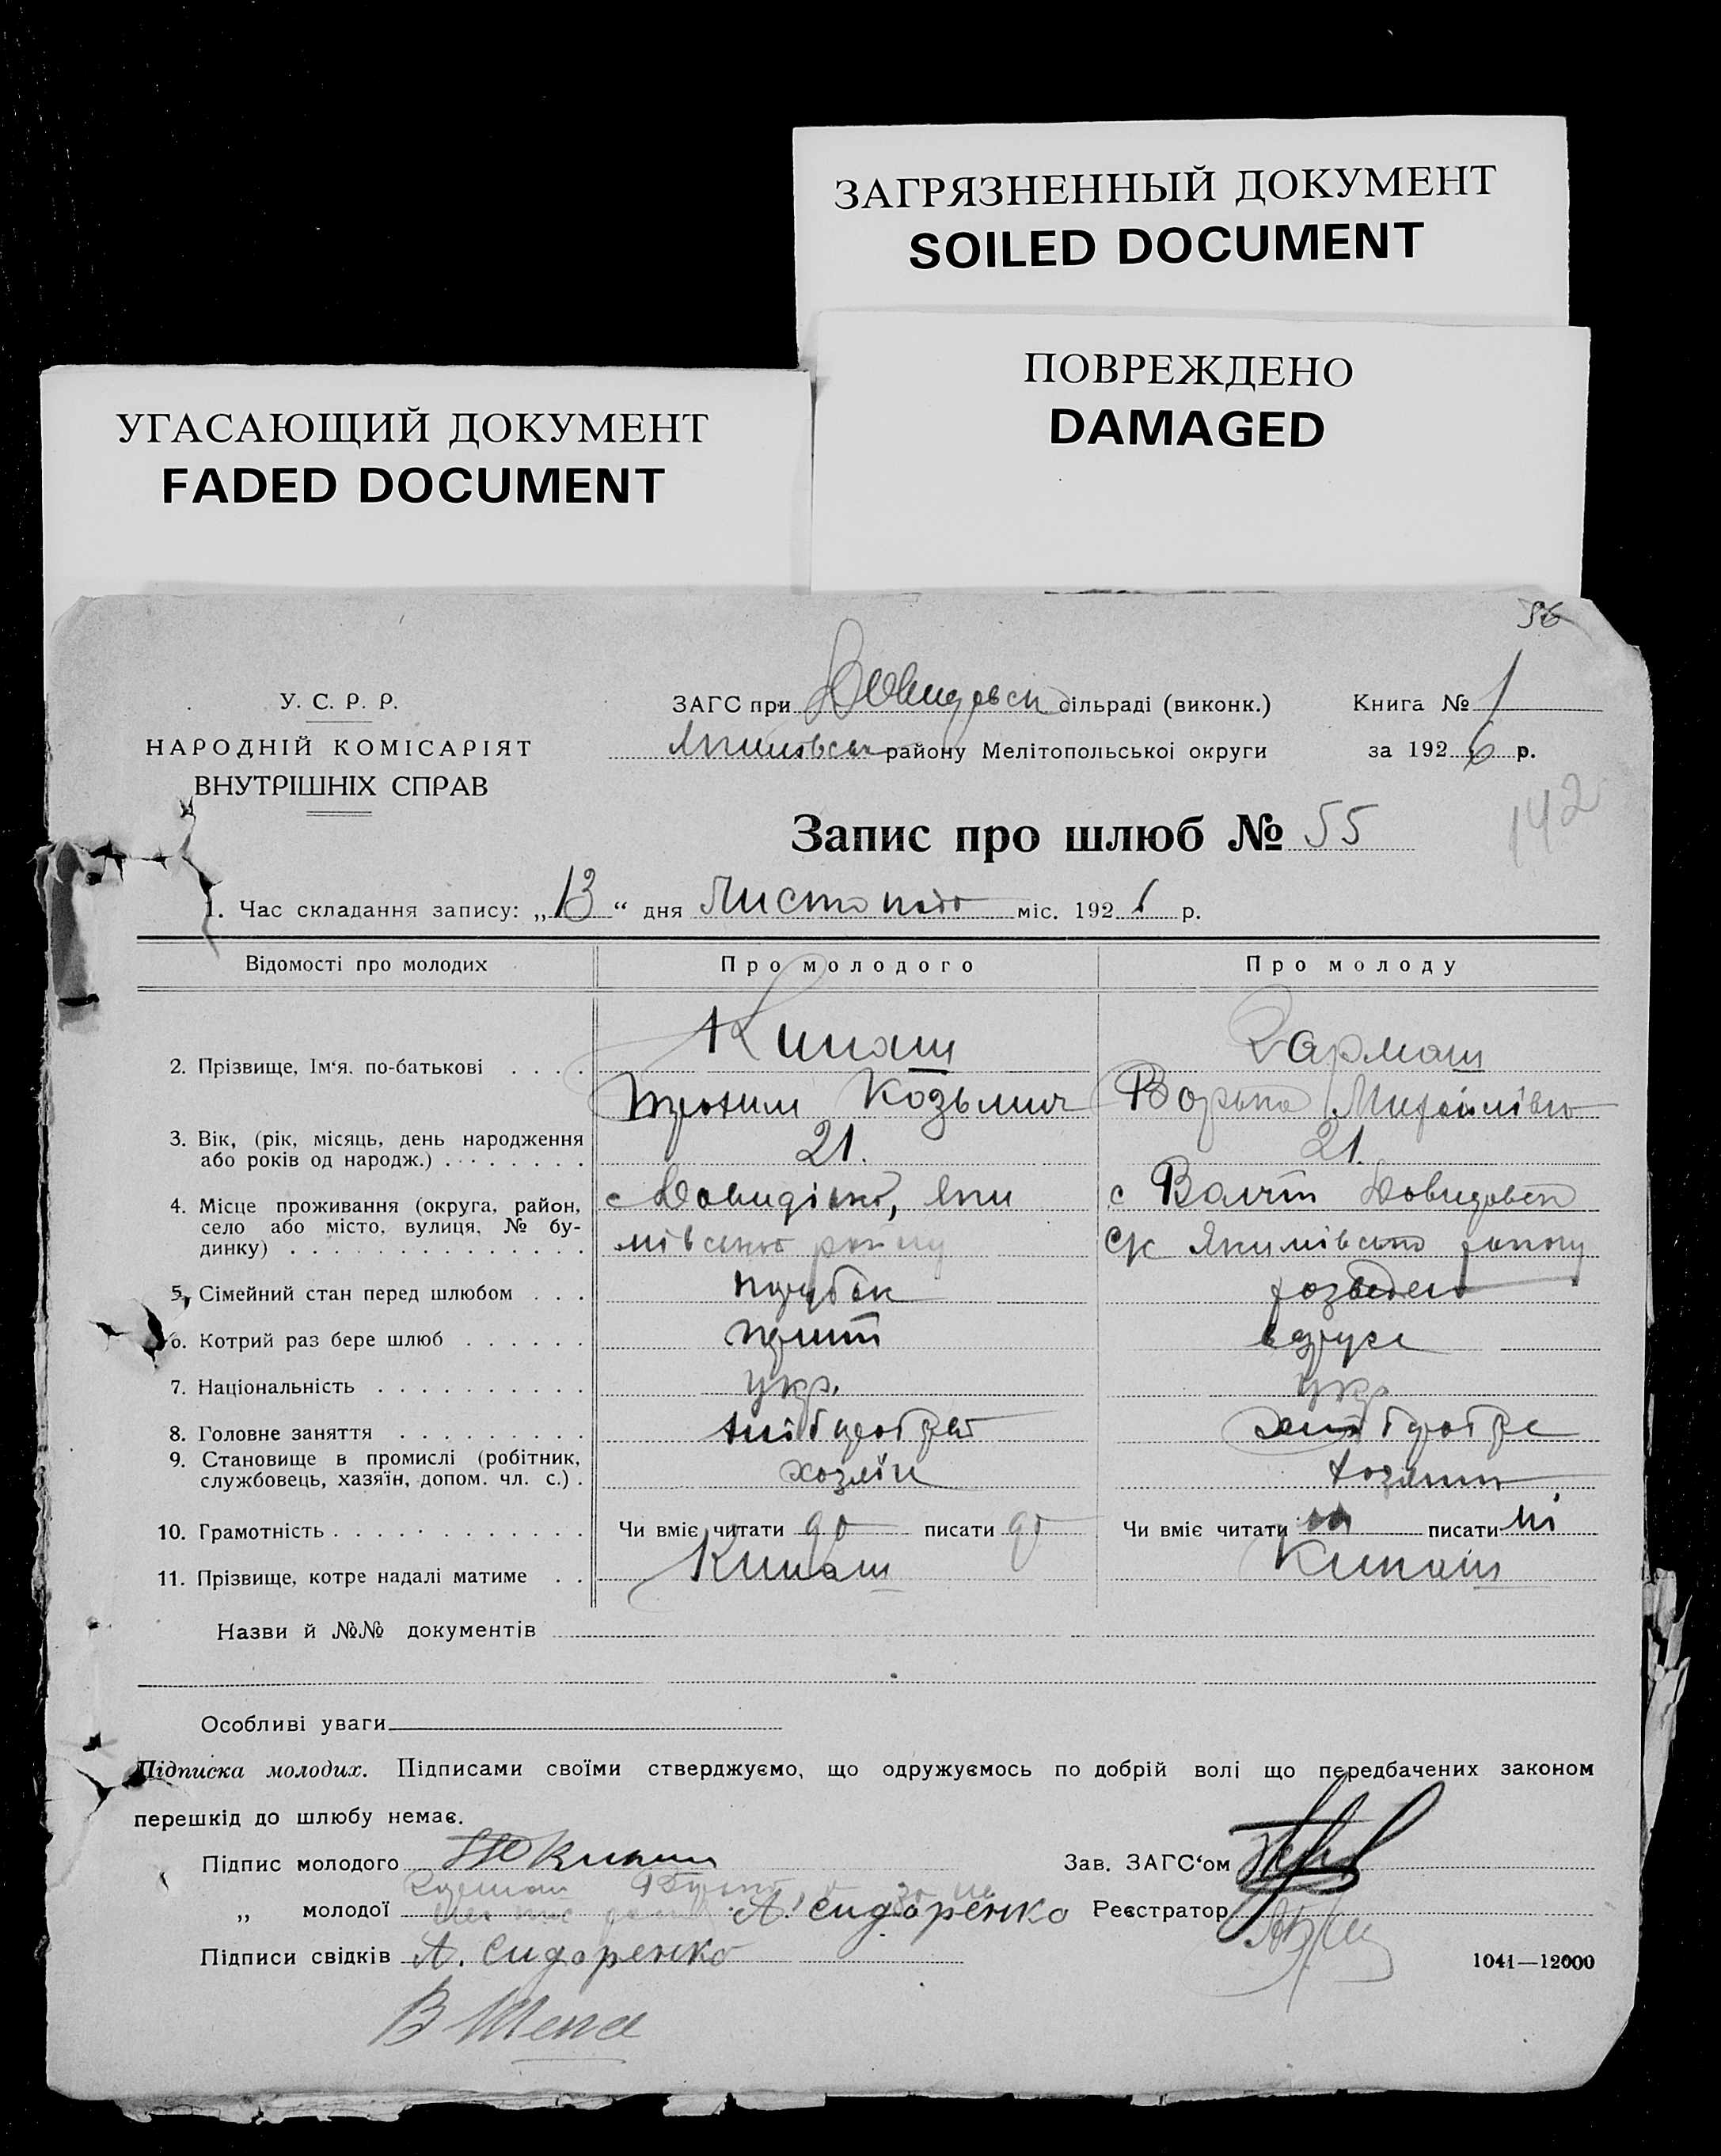 ЗАГРЯЗНЕННЫЙ ДОКУМЕНТ
SOILED DOCUMENT
ПОВРЕЖДЕНО
DAMAGED
УГАСАЮЩИЙ ДОКУМЕНТ
FADED DOCUMENT
56
У. С. Р. Р.
НАРОДНІЙ КОМІСАРІЯТ
ВНУТРІШНІХ СПРАВ
ЗАГС при Довидовск сільраді (виконк.)
Якимівськ району Мелітопольської округи
Книга № 1
за 1926 р.
142
Запис про шлюб № 55
1. Час складання запису: „13“ дня Листопада міс. 1926 р.
Відомості про молодих Про молодого Про молоду
2. Прізвище, Ім‘я, по-батькові . . . . Кипаш Гармаш
Трохим Козьмич Варька Михайлівна
3. Вік, (рік, місяць, день народження
або років од народж.) . . . . . . . 21. 21.
4. Місце проживання (округа, район,
село або місто, вулиця, № бу-
динку) . . . . . . . . . . . . . .
с Довидівка, Яки
мівського району
с Довидовск
с/к Якимівського району
5. Сімейний стан перед шлюбом . . . парубок розведена
6. Котрий раз бере шлюб . . . . . . перший вдруге
7. Національність . . . . . . . . . . укр. укр
8. Головне заняття . . . . . . . . . хлібороб хлібороб
9. Становище в промислі (робітник,
службовець, хазяїн, допом. чл. с.) . хозяїн
10. Грамотність . . . . . . . . . . . . Чи вміє читати до писати до Чи вміє читати ні писати ні
11. Прізвище, котре надалі матиме . . Кипаш Кипаш
Назви й №№ документів
Особливі уваги
Підписка молодих. Підписами своїми стверджуємо, що одружуємось по добрій волі що передбачених законом
перешкід до шлюбу немає.
Підпис молодого Кипаш
Зав. ЗАГС‘ом
„ молодої А. Сидоренко
Реєстратор
Підписи свідків А. Сидоренко
1041—12000
В Шепа